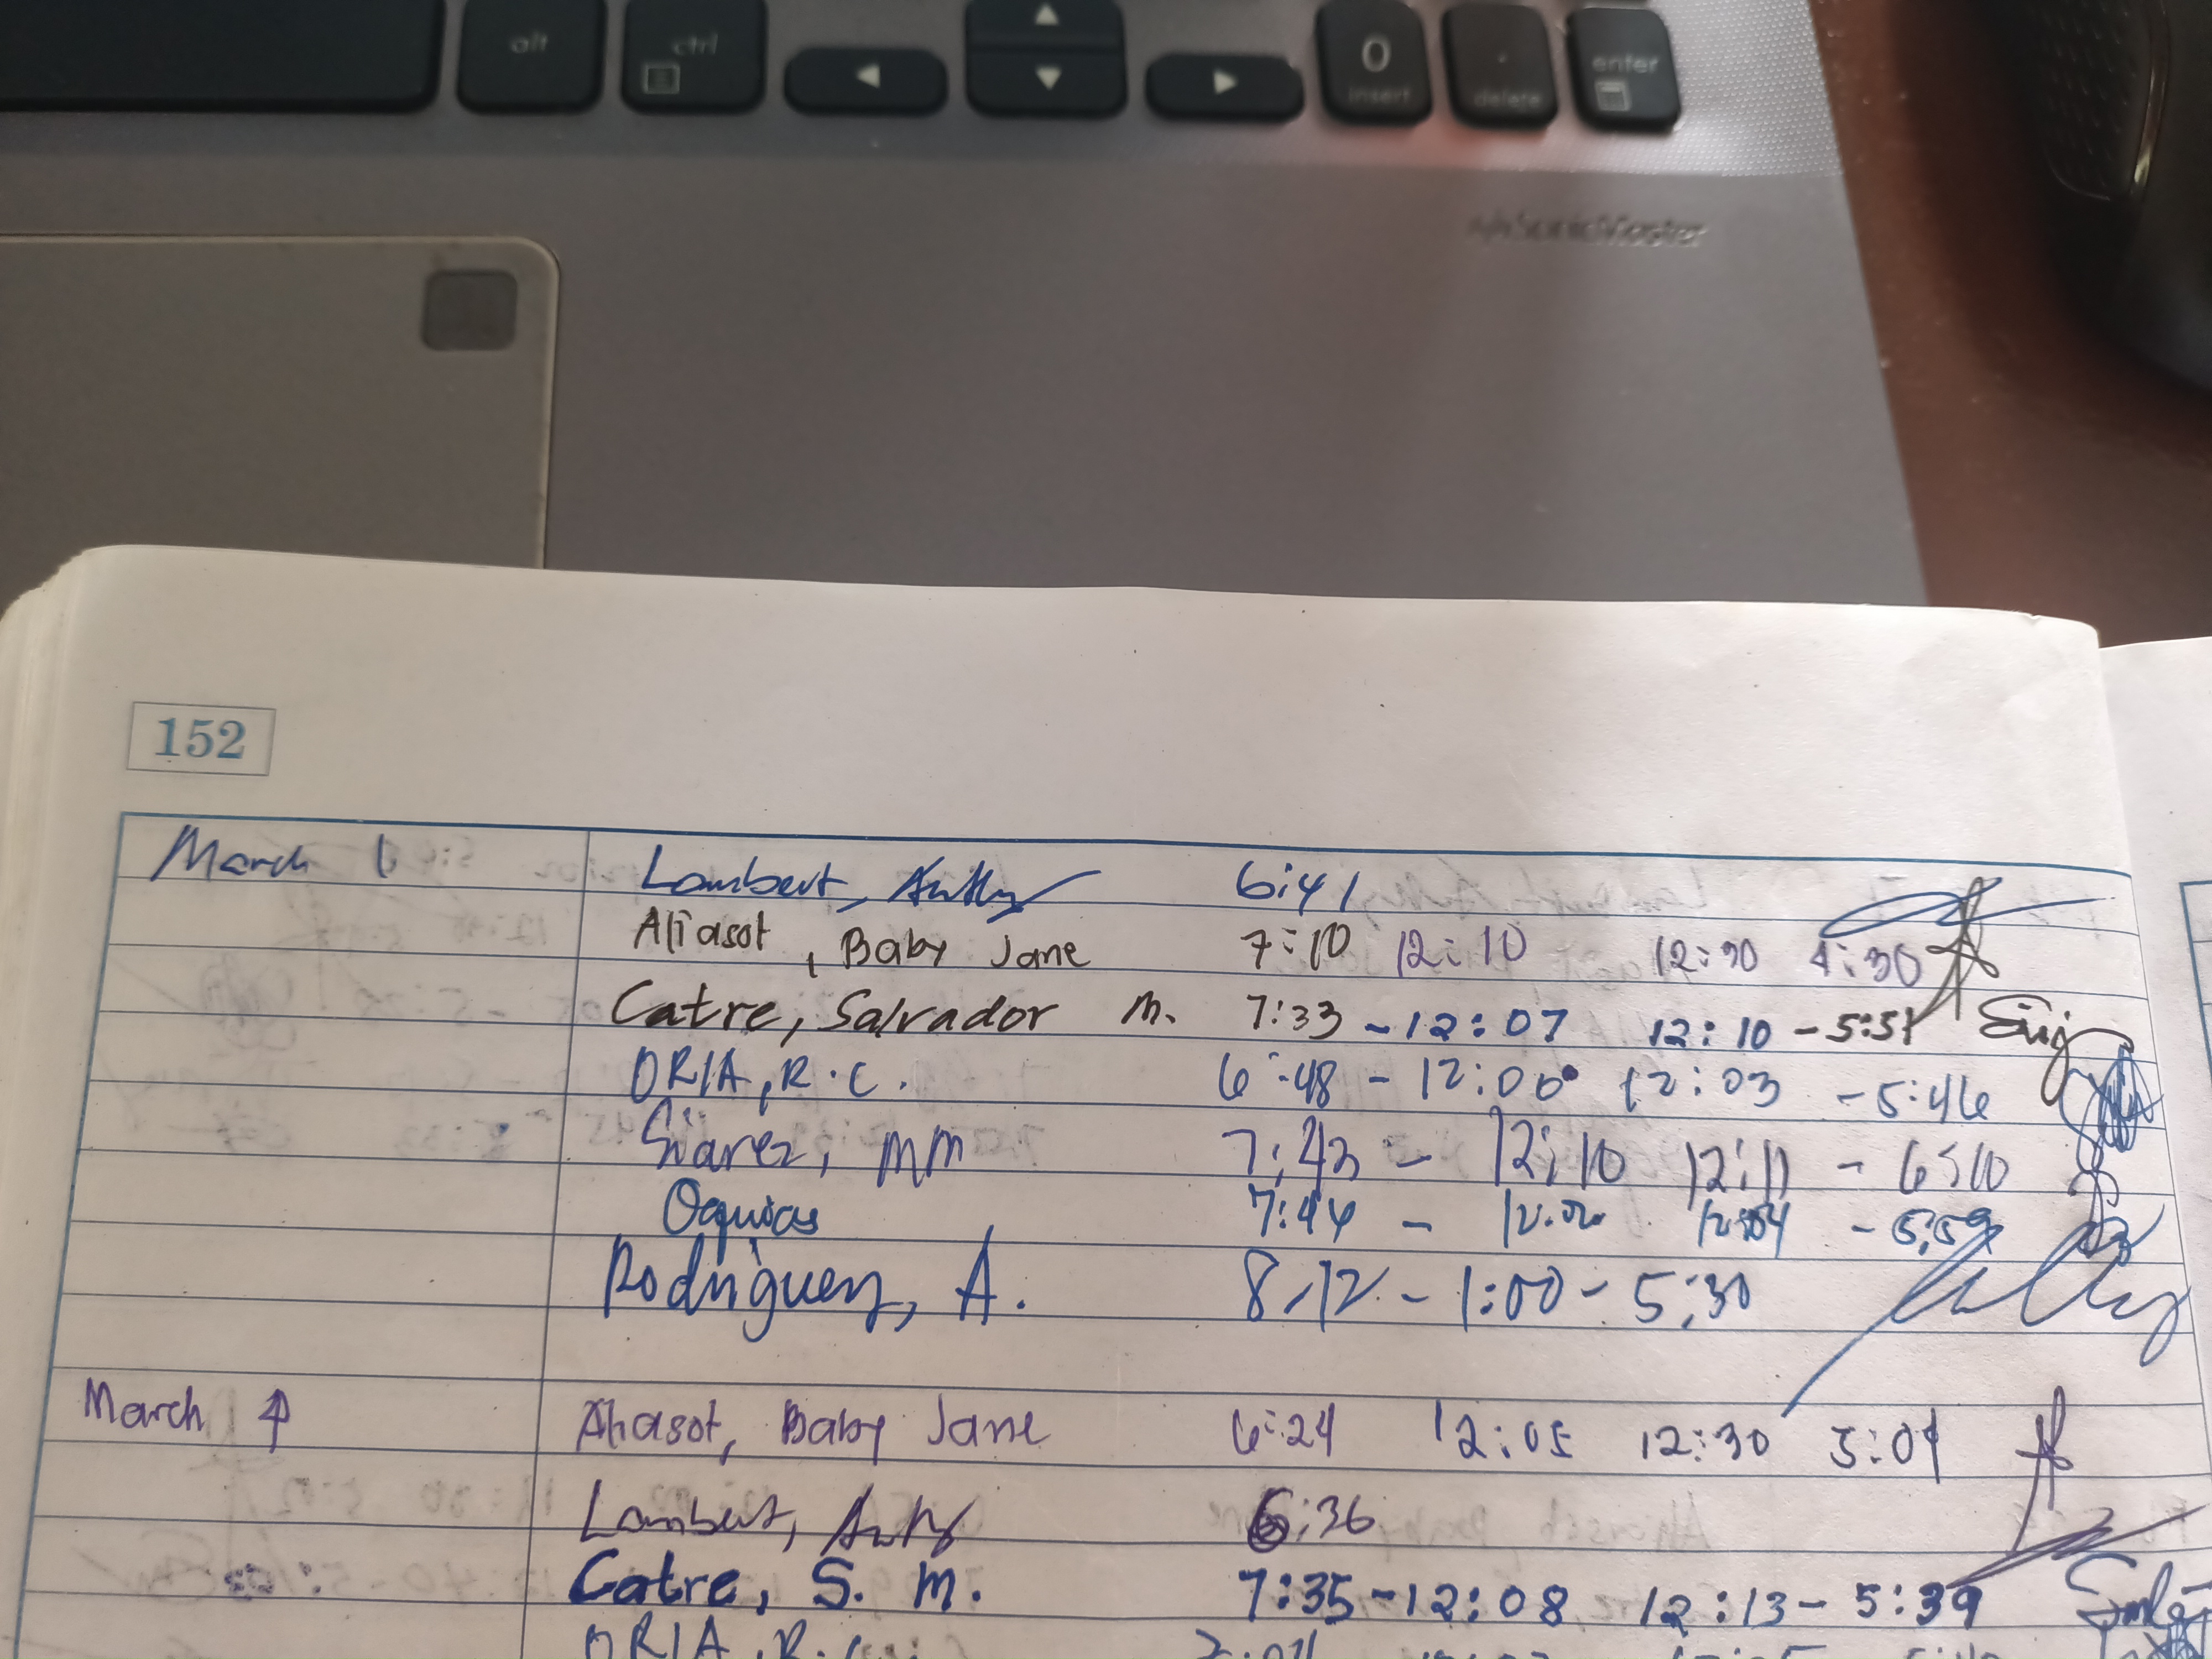 alt ctrl ◀ ▲ ▼ ▶ 0 insert . delete enter
SonicMaster
152
March 6 Lambert, 6:41
Aliasot, Baby Jane 7:10 12:10 12:30 4:30
Catre, Salvador M. 7:33 - 12:07 12:10 - 5:51
ORIA, R.C. 6:48 - 12:00 12:03 - 5:46
Suarez, MM 7:43 - 12:10 12:11 - 6:10
Oquias 7:44 - 12:02 12:04 - 5:59
Rodriguez, A. 8-12 - 1:00 - 5:30
March 7 Aliasot, Baby Jane 6:24 12:05 12:30 5:01
Lambert, 6:36
Catre, S. M. 7:35 - 12:08 12:13 - 5:39
ORIA, R.C.